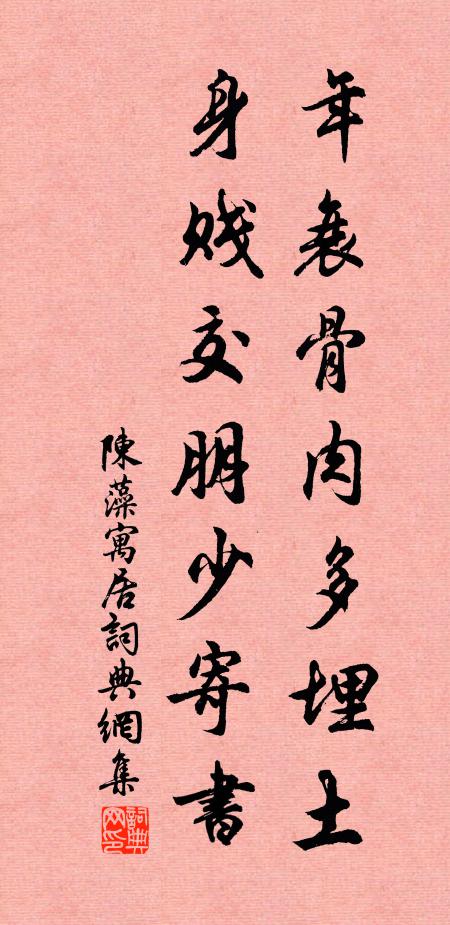 年衰骨肉多埋土
身賤交朋少寄書
陳藻寓居詞典網集
詞典網印